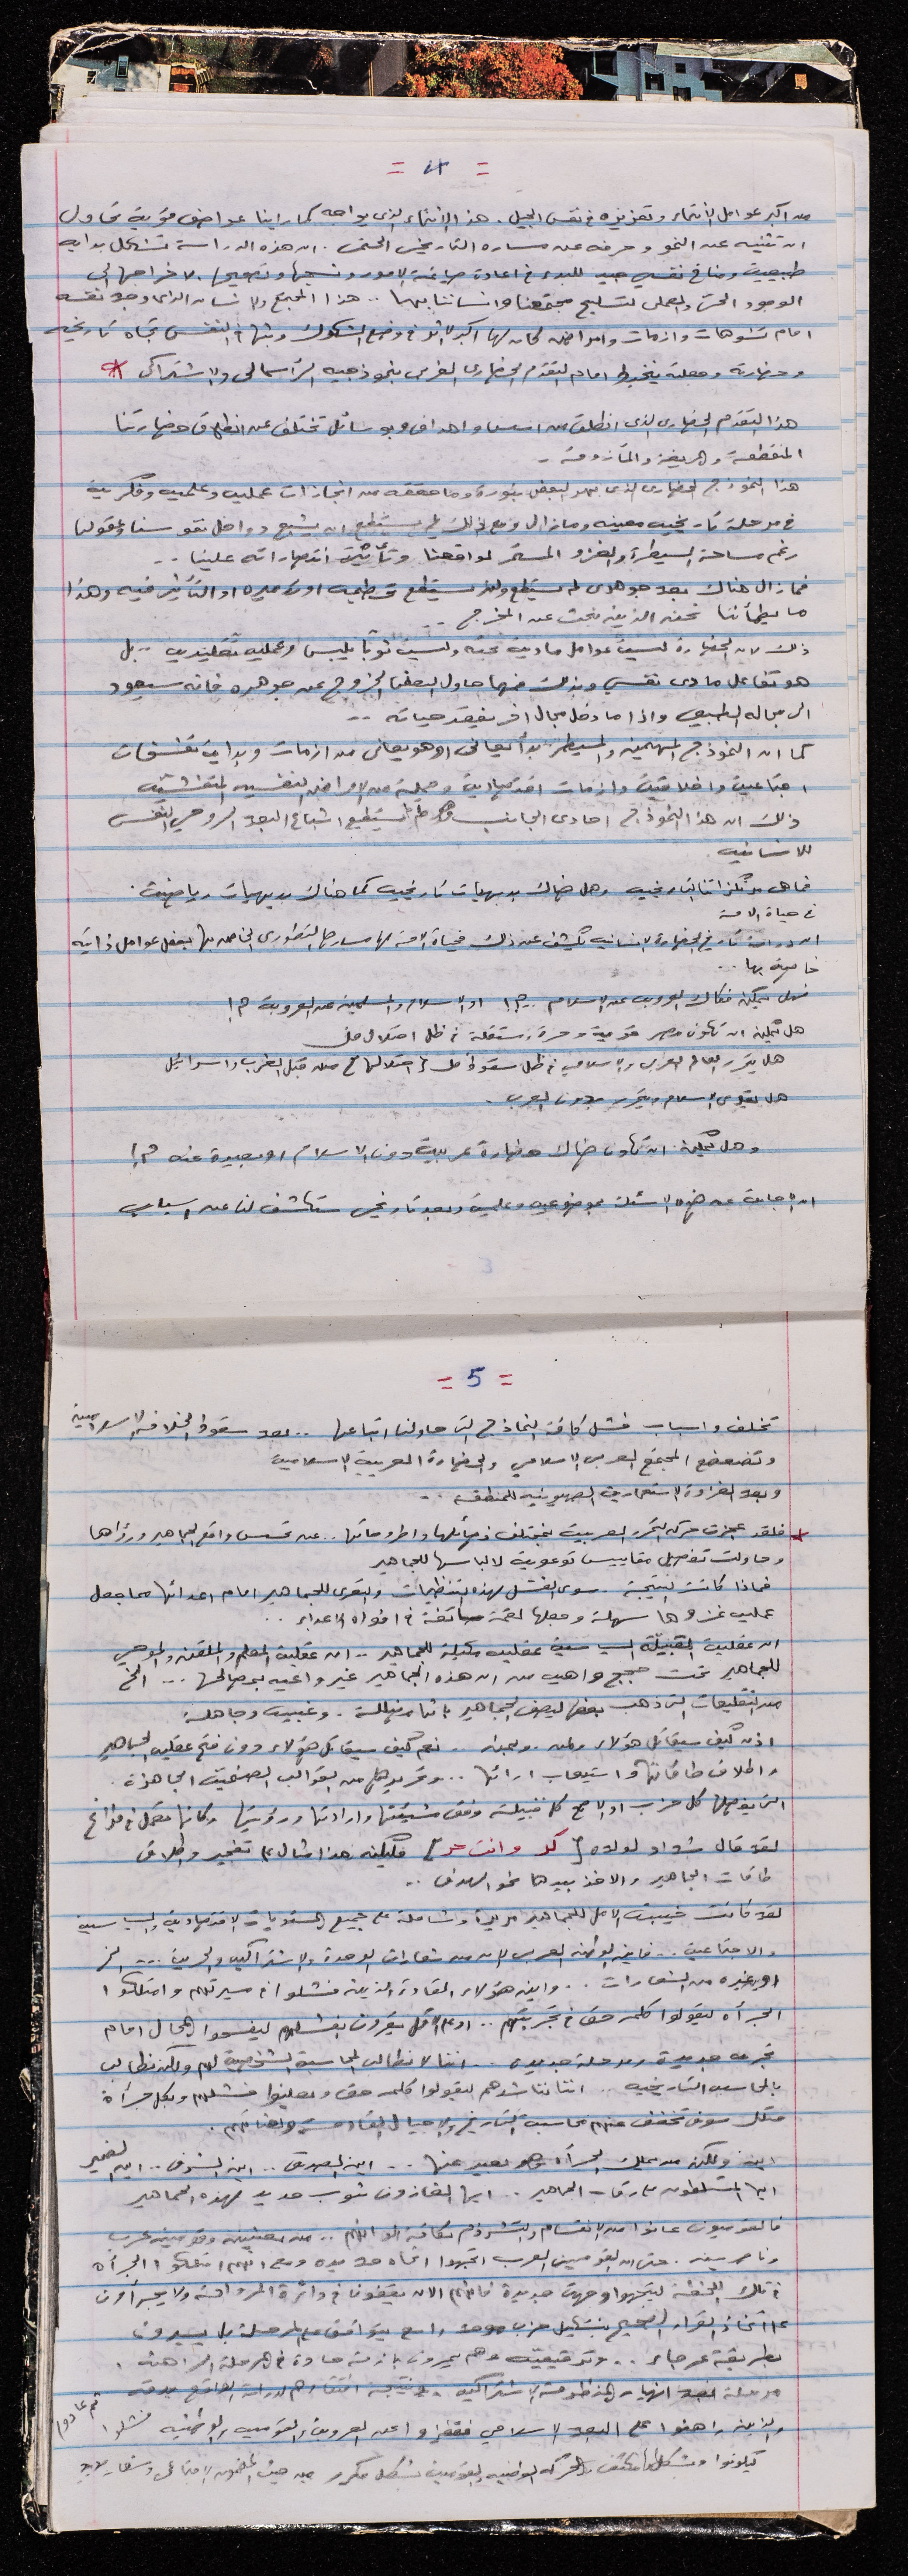 = 4 =
من اكبر عوامل الانتماء وتعزيزه في نفس الجيل . هذا الانتماء الذي يواجه كما راينا عواصف قوية تحاول
ان تثنيه عن النمو وحرفه عن مساره التاريخي الحتمي . ان هذه الدراسة تشكل بداية
طبيعية ومناخ نفسي جيد للبدء في اعادة صياغة الامور ونسجها وتصحيحها . لاخراجها الى
الوجود الحي والعملي لتسليح مجتمعنا وانساننا بها .. هذا المجتمع والانسان الذي وجد نفسه
امام تشوهات وازمات وامراض كان لها اكبر الاثر في وضع الشكوك وبثها في النفس تجاه تاريخه
وحضارته وجعلته يتخبط امام التقدم الحضاري الغربي بنموذجيه الرأسمالي والاشتراكي *
هذا التقدم الحضاري الذي انطلق من اسس واهداف وبوسائل تختلف عن انطلاق حضارتنا
المنقطعة والمأزومة .
هذا النموذج الحضاري الذي بهر البعض بثورة وما حققه من انجازات عملية وعلمية وفكرية
في مرحلة تاريخية معينة وما زال ومع ذلك لم يستطع ان يشبع دواخل نفوسنا وعقولنا
رغم مساحة السيطرة والغزو المستمر لمواقعنا وتأثير انتصاراته علينا ..
فما زال هناك بعد جوهري لم يستطع ولن يستطع تحطيمه او تدميره او التأثير فيه وهذا
ما يطمأننا نحن الذين نبحث عن المخرج ..
ذلك لان الحضارة ليست عوامل مادية بحته وليست ثوبا يلبس وعملية تقليدية .. بل
هو تفاعل مادي نفسي وبذلك فمهما حاول البعض الخروج عن جوهره فانه سيعود
الى مجاله الطبيعي واذا ما دخل مجال اخر يفقد حياته ..
كما ان النموذج المهيمن والمسيطر بدأ يعاني او هو يعاني من ازمات وبداية تفسخات
اجتماعية واخلاقية وازمات اقتصادية وجملة من الامراض النفسية المتفشية
ذلك ان هذا النموذج احادي الجانب ولم يستطيع اشباع البعد الروحي النفسي
للانسانية
فما هي مرتكزاتنا التاريخية وهل هناك بديهيات تاريخية كما هناك بديهيات رياضية .
في حياة الامة
ان دراسة تاريخ الحضارة الانسانية يكشف عن ذلك فحياة الامة لها مسارها التطوري الخاص بها بفعل عوامل ذاتية
خاصة بها ...
فهل يمكن فكاك العروبة عن الاسلام ..؟! او الاسلام والمسلمين عن العروبة ؟!
هل يمكن ان تكون مصر قوية وحرة ومستقلة في ظل احتلال
هل يتحرر العالم العربي والاسلامي في ظل سقوط احتلالها من قبل الغرب واسرائيل
هل يقوى الاسلام ويتحرر بدون العرب .
وهل يمكن ان تكون هناك حضارة عربية دون الاسلام او بعيدة عنه ؟!
ان الاجابة عن هذه الاسئلة بموضوعية وعلمية وبعد تاريخي ستكشف لنا عن اسباب
= 5 =
تخلف واسباب فشل كافة النماذج التي حاولنا اتباعها .. بعد سقوط الخلافة الاسلامية
وتضعضع المجتمع العربي الاسلامي والحضارة العربية الاسلامية
وبعد الغزوة الاستعمارية الصهيونية للمنطقة ..
* فلقد عجزت حركة التحرر العربية بمختلف فصائلها واطروحاتها .. عن تحسس واقع الجماهير ورؤاها
وحاولت تفصيل مقاييس توعوية لالباسها للجماهير
فماذا كانت النتيجة . سوى الفشل لهذه التنظيمات والتعري للجماهير امام اعدائها مما جعل
عملية غزوها سهلة وجعلها لقمة سائغة في افواه الاعداء ..
ان عقلية القبيلة السياسية عقلية مكبلة للجماهير .. ان عقلية المعلم والملقن والموصي
للجماهير تحت حجج واهية من ان هذه الجماهير غير واعية بمصالحها ... الخ
من التقليعات التي ذهب بعضها ليصف الجماهير بانها متهالكة . وغبية وجاهلة
اذن كيف سيقاتل هؤلاء وبمن .. نعم كيف سيقاتل هؤلاء دون فتح عقلية الجماهير
واطلاق طاقاتها واستيعاب ارائها .. وتحريرها من القوالب الصنمية الجاهزة .
التي يفصلها كل حزب او بالاصح كل قبيلة وفق مشيئتها وارادتها ورؤيتها وكأنها
لقد قال شداد لولده [ كر وانت حر ] فليكن هذا مثال على تفجير واطلاق
طاقات الجماهير والاخذ بيدها نحو الهدف ..
لقد كانت خيبت الامل للجماهير مريرة وشاملة على جميع المستويات الاقتصادية والسياسية
والاجتماعية .. فاين الوطن العربي الان من شعارات الوحدة والاشتراكية والحرية ... الخ
او غيره من الشعارات .. واين هؤلاء القادة الذين فشلوا في مسيرتهم وامتلكوا
الجرأة ليقولوا كلمة حق في تجربتهم .. او على الاقل يقرون بفشلهم ليفسحوا المجال امام
تجربة جديدة ومرحلة جديدة .. اننا لا نطالب المحاسبة الشخصية لهم ولكن نطالب
بالمحاسبة التاريخية .. اننا نناشدهم ليقولوا كلمة حق ويعلنوا فشلهم وبكل جرأة
سوف تخفف عنهم محاسبة التاريخ والاجيال القادمة
اين ولكن من يملك الجرأة وهو بعيد عنها .. اين الصدق .. اين الشرف .. اين الضمير
ايها المتسلقون على رقاب الجماهير .. ايها الغازون بثوب جديد لهذه الجماهير
فالقوميون عانوا من الانقسام والتشرذم بكافة الوانهم .. من بعثيين وقوميين عرب
وناصريين . حتى ان القوميين العرب اتجهوا اتجاه جديده ومع انهم امتلكوا الجرأة
في تلك اللحظة ليتجهوا وجهة جديدة فانهم الان يقفون في دائرة المراوحة ولا يجرأون
على اتخاذ القرار الصحيح بتشكيل حزب موحد واسع يتوافق مع المرحلة بل يسيرون
بطريقة عرجاء .. وتوفيقية وهم يمرون بازمة حادة في المرحلة الراهنة .
مرحلة بعد انهيار المنظومة الاشتراكية . ونتيجة افتقارهم لدراسة الواقع بدقة
والذين راهنوا على البعد الاسلامي فقفزوا عن العروبة والقومية والوطنية فشلوا ثم عادوا
ليكونوا وبشكل مكثف بالحركة الوطنية والقومية بشكل مكرر من حيث المفهوم الاجتماعي